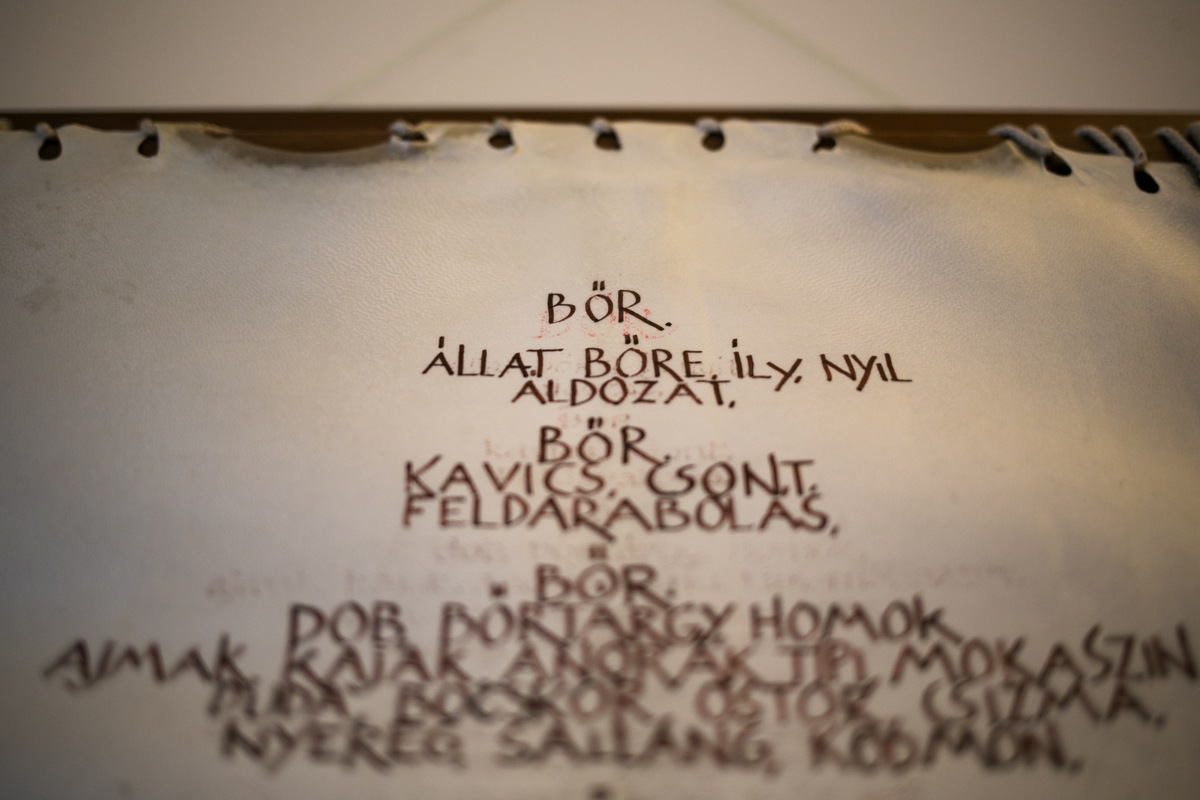 BŐR.
ÁLLAT BŐRE. ÍLY. NYIL
ÁLDOZAT.
BŐR.
KAVICS. CSONT.
FELDARABOLÁS.
BŐR.
DOB BŐRTÁRGY HOMOK
AJMAK KAJAK ANORÁK TIPI MOKASZIN
DUDA BOCSKOR OSTOR CSIZMA.
NYEREG SALLANG. KÖDMÖN.